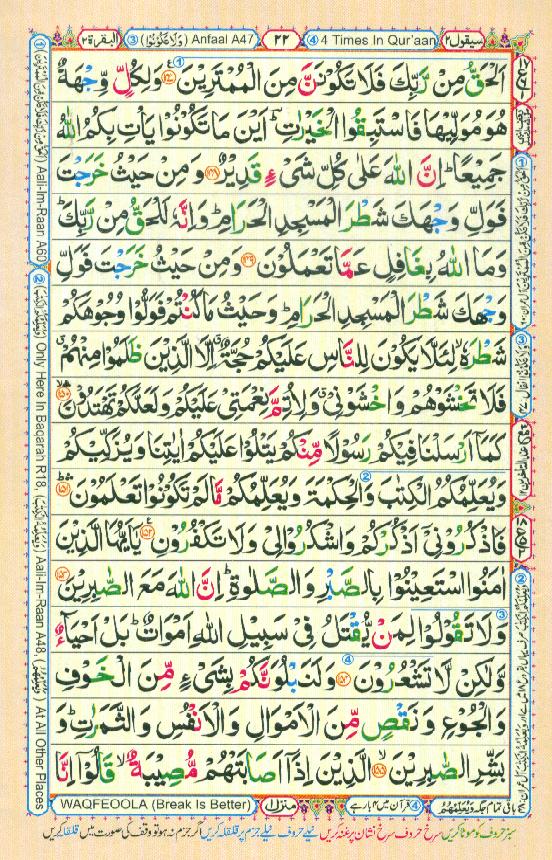 سیقول ۲
④ 4 Times In Qur'aan
۲۲
Anfaal A47 (وَلَا تَكُوْنُوْا) ③
البقرة ۲
اَلْحَقُّ مِنْ رَّبِّكَ فَلَا تَكُوْنَنَّ مِنَ الْمُمْتَرِيْنَ ۝ وَلِكُلٍّ وِّجْهَةٌ
هُوَ مُوَلِّيْهَا فَاسْتَبِقُوا الْخَيْرٰتِ ؕ اَيْنَ مَا تَكُوْنُوْا يَاْتِ بِكُمُ اللّٰهُ
جَمِيْعًا ؕ اِنَّ اللّٰهَ عَلٰى كُلِّ شَیْءٍ قَدِيْرٌ ۝ وَمِنْ حَيْثُ خَرَجْتَ
فَوَلِّ وَجْهَكَ شَطْرَ الْمَسْجِدِ الْحَرَامِ ؕ وَاِنَّهٗ لَلْحَقُّ مِنْ رَّبِّكَ ؕ
وَمَا اللّٰهُ بِغَافِلٍ عَمَّا تَعْمَلُوْنَ ۝ وَمِنْ حَيْثُ خَرَجْتَ فَوَلِّ
وَجْهَكَ شَطْرَ الْمَسْجِدِ الْحَرَامِ ؕ وَحَيْثُ مَا كُنْتُمْ فَوَلُّوْا وُجُوْهَكُمْ
شَطْرَهٗ ۙ لِئَلَّا يَكُوْنَ لِلنَّاسِ عَلَيْكُمْ حُجَّةٌ ۙ اِلَّا الَّذِيْنَ ظَلَمُوْا مِنْهُمْ ۗ
فَلَا تَخْشَوْهُمْ وَاخْشَوْنِیْ ۗ وَلِاُتِمَّ نِعْمَتِیْ عَلَيْكُمْ وَلَعَلَّكُمْ تَهْتَدُوْنَ ۝
كَمَاۤ اَرْسَلْنَا فِيْكُمْ رَسُوْلًا مِّنْكُمْ يَتْلُوْا عَلَيْكُمْ اٰيٰتِنَا وَيُزَكِّيْكُمْ
وَيُعَلِّمُكُمُ الْكِتٰبَ وَالْحِكْمَةَ وَيُعَلِّمُكُمْ مَّا لَمْ تَكُوْنُوْا تَعْلَمُوْنَ ۝
فَاذْكُرُوْنِیْۤ اَذْكُرْكُمْ وَاشْكُرُوْا لِیْ وَلَا تَكْفُرُوْنِ ۝ يٰۤاَيُّهَا الَّذِيْنَ
اٰمَنُوا اسْتَعِيْنُوْا بِالصَّبْرِ وَالصَّلٰوةِ ؕ اِنَّ اللّٰهَ مَعَ الصّٰبِرِيْنَ ۝
وَلَا تَقُوْلُوْا لِمَنْ يُّقْتَلُ فِیْ سَبِيْلِ اللّٰهِ اَمْوَاتٌ ؕ بَلْ اَحْيَآءٌ
وَّلٰكِنْ لَّا تَشْعُرُوْنَ ۝ وَلَنَبْلُوَنَّكُمْ بِشَیْءٍ مِّنَ الْخَوْفِ
وَالْجُوْعِ وَنَقْصٍ مِّنَ الْاَمْوَالِ وَالْاَنْفُسِ وَالثَّمَرٰتِ ؕ وَ
بَشِّرِ الصّٰبِرِيْنَ ۝ الَّذِيْنَ اِذَاۤ اَصَابَتْهُمْ مُّصِيْبَةٌ ۙ قَالُوْۤا اِنَّا
① Aali-Im-Raan A60
② (وَيُعَلِّمُكُمُ الْكِتٰبَ) Only Here In Baqarah R18, (وَيُعَلِّمُهُ الْكِتٰبَ) Aali-Im-Raan A48, (وَيُعَلِّمُهُمُ) At All Other Places
باقی تمام جگہ وَيُعَلِّمُهُمُ
④ قرآن میں ۴ بار ہے
منزل ۱
WAQFEOOLA (Break Is Better)
سبز حروف کو موٹا کریں سرخ حروف سرخ نشان پر غنہ کریں نیلے حروف نیلے جزم پر قلقلہ کریں اگر جزم نہ ہو تو وقف کی صورت میں قلقلہ کریں